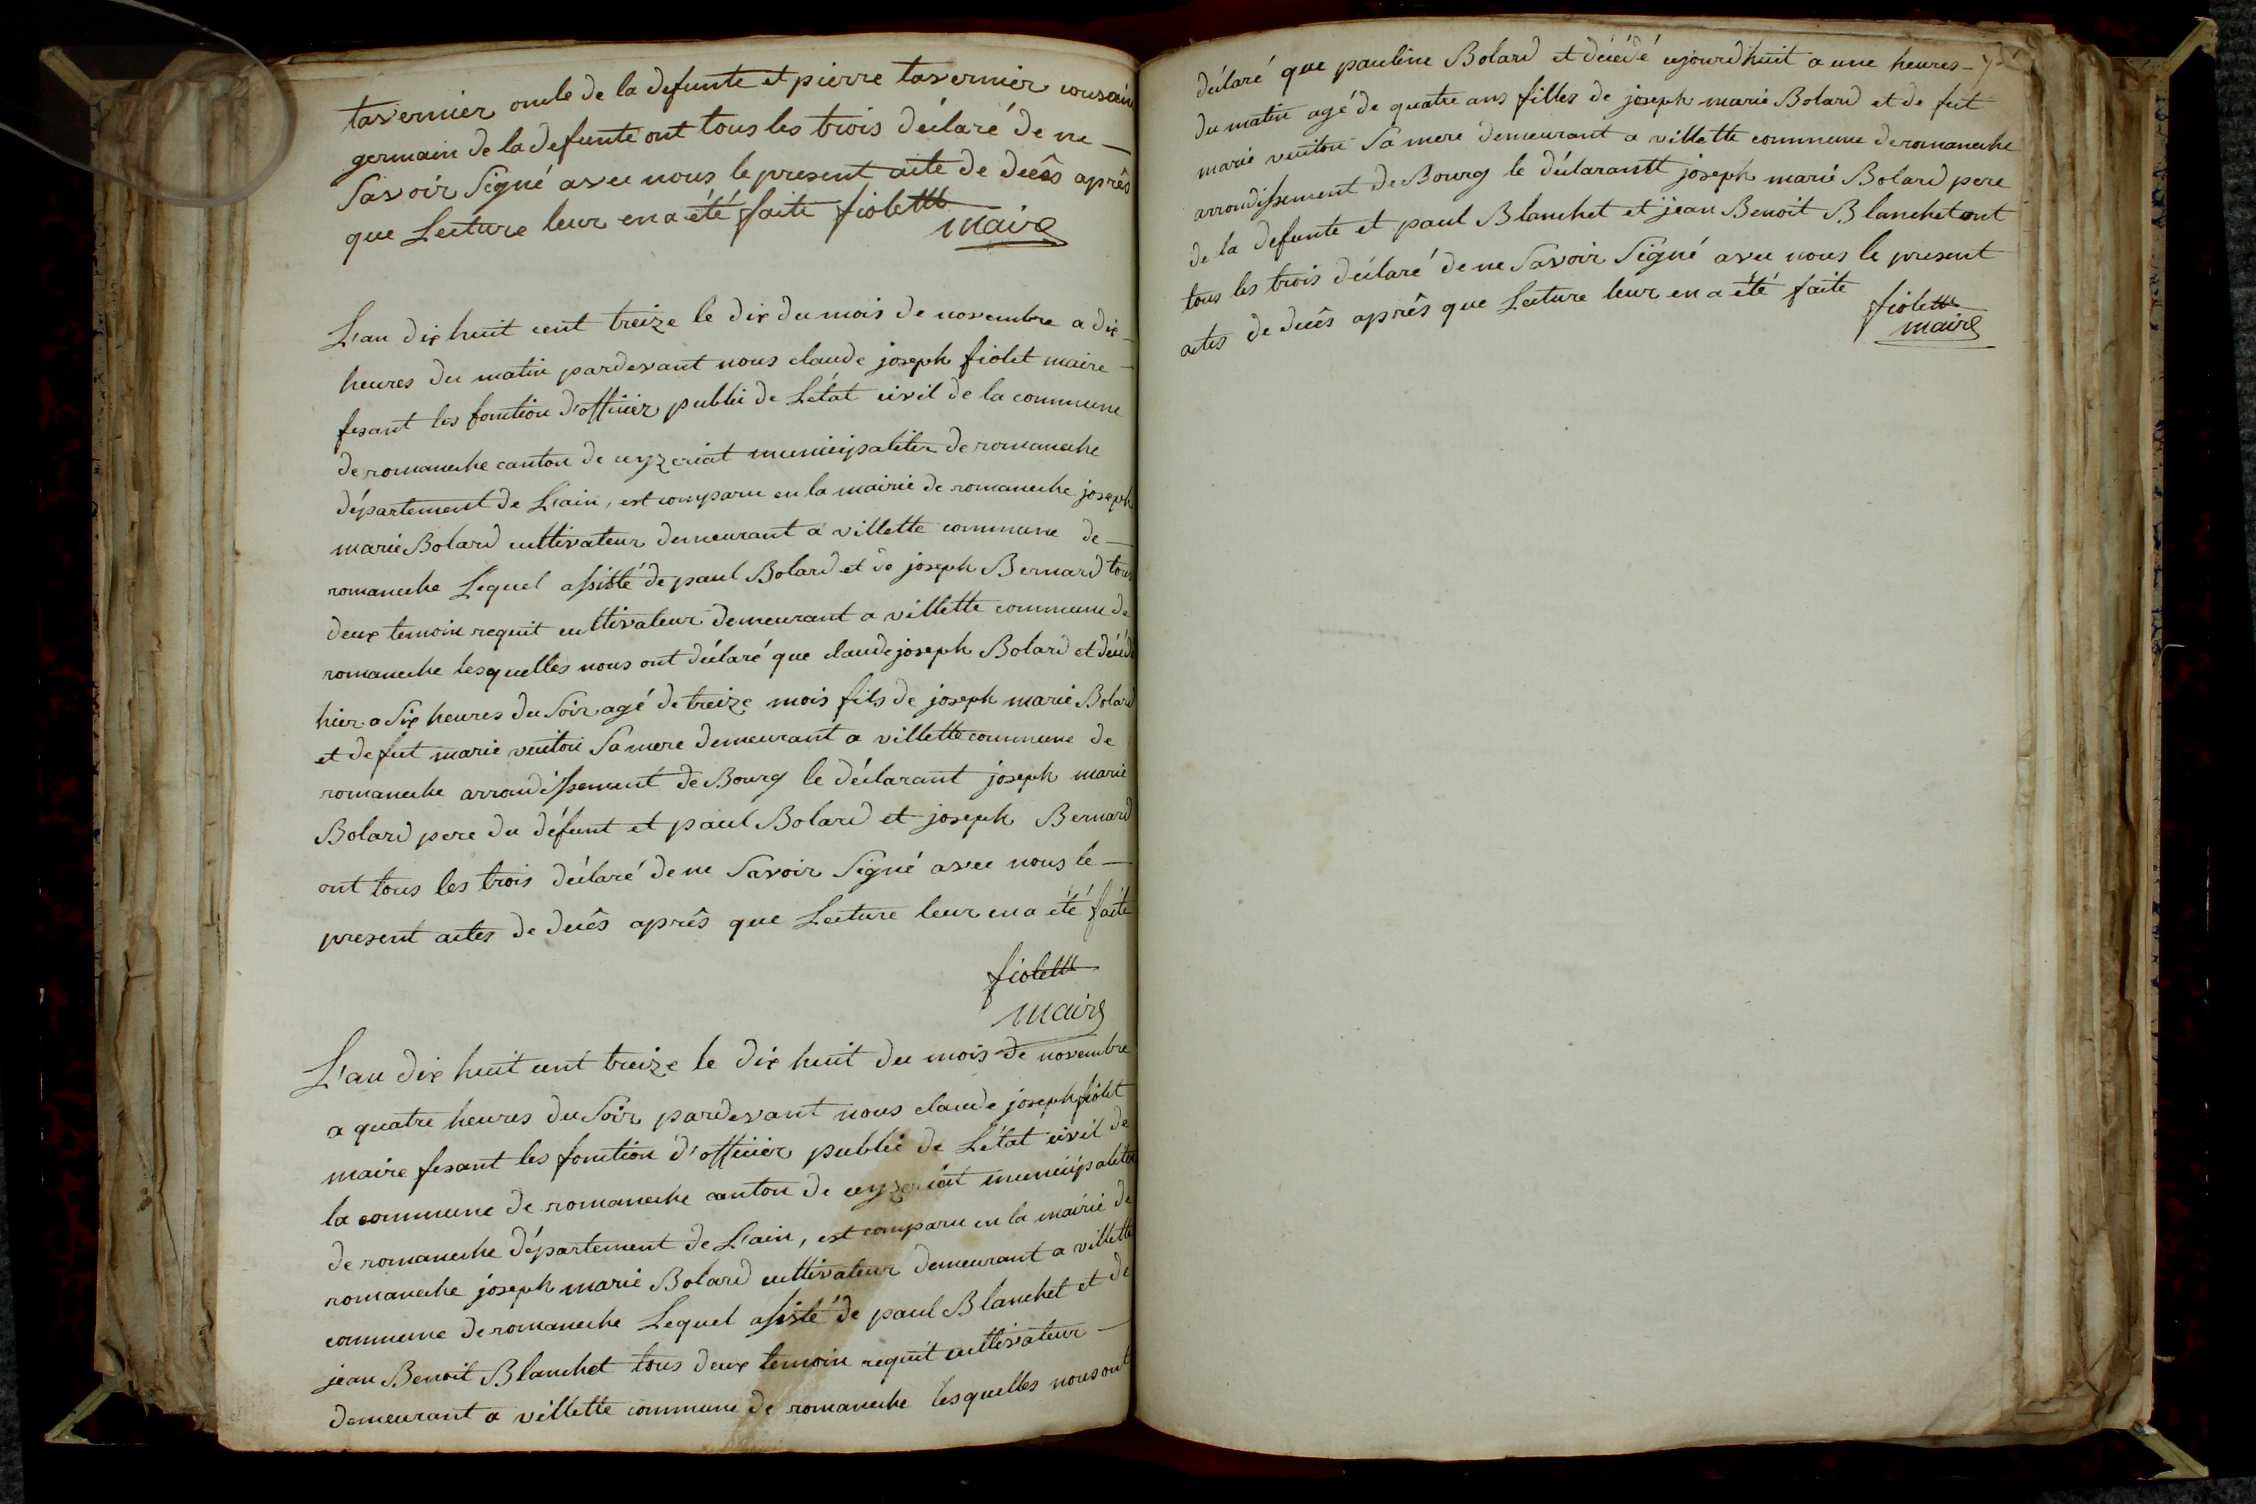 tavernier oncle de la defunte et pierre tavernier cousain
germain de la defunte ont tous les trois déclaré de ne —
Savoir Signé avec nous le present acte de decês aprês
que Lecture leur en a été faite fiolet
maire
L'an dix huit cent treize le dix du mois de novembre a dix —
heures du matin pardevant nous claude joseph fiolet maire —
fesant les fonction d'officier public de L'état civil de la commune
de romaneche canton de ceyzeriat municipaliter de romaneche
département de L'ain, est comparu en la mairie de romaneche joseph
marie Bolard cultivateur demeurant a villette commune de —
romaneche Lequel assisté de paul Bolard et de joseph Bernard tous
deux temoin requit cultivateur demeurant a villette commune de
romaneche lesquelles nous ont déclaré que claude joseph Bolard et décédé
hier a Six heures du Soir agé de treize mois fils de joseph marie Bolard
et de fut marie vuiton Sa mere demeurant a villette commune de
romaneche arrondissement de Bourg le déclarant joseph marie
Bolard pere du défunt et paul Bolard et joseph Bernard
ont tous les trois déclaré de ne Savoir Signé avec nous le —
present actes de decês aprês que Lecture leur en a été faite
fiolet
maire
L'an dix huit cent treize le dix huit du mois de novembre
a quatre heures du Soir pardevant nous claude joseph fiolet
maire fesant les fonction d'officier public de L'état civil de
la commune de romaneche canton de ceyzeriat municipaliter
de romaneche département de L'ain, est comparu en la mairie de
romaneche joseph marie Bolard cultivateur demeurant a villette
commune de romaneche Lequel assisté de paul Blanchet et de
jean Benoit Blanchet tous deux temoin requit cultivateur —
demeurant a villette commune de romaneche lesquelles nous ont
déclaré que pauline Bolard et décédé cejourdhuit a une heures —
du matin agé de quatre ans filles de joseph marie Bolard et de fut
marie vuiton Sa mere demeurant a villette commune de romaneche
arrondissement de Bourg le déclarant joseph marie Bolard pere
de la defunte et paul Blanchet et jean Benoit Blanchet ont
tous les trois déclaré de ne Savoir Signé avec nous le present
actes de decês aprês que Lecture leur en a été faite
fiolet
maire